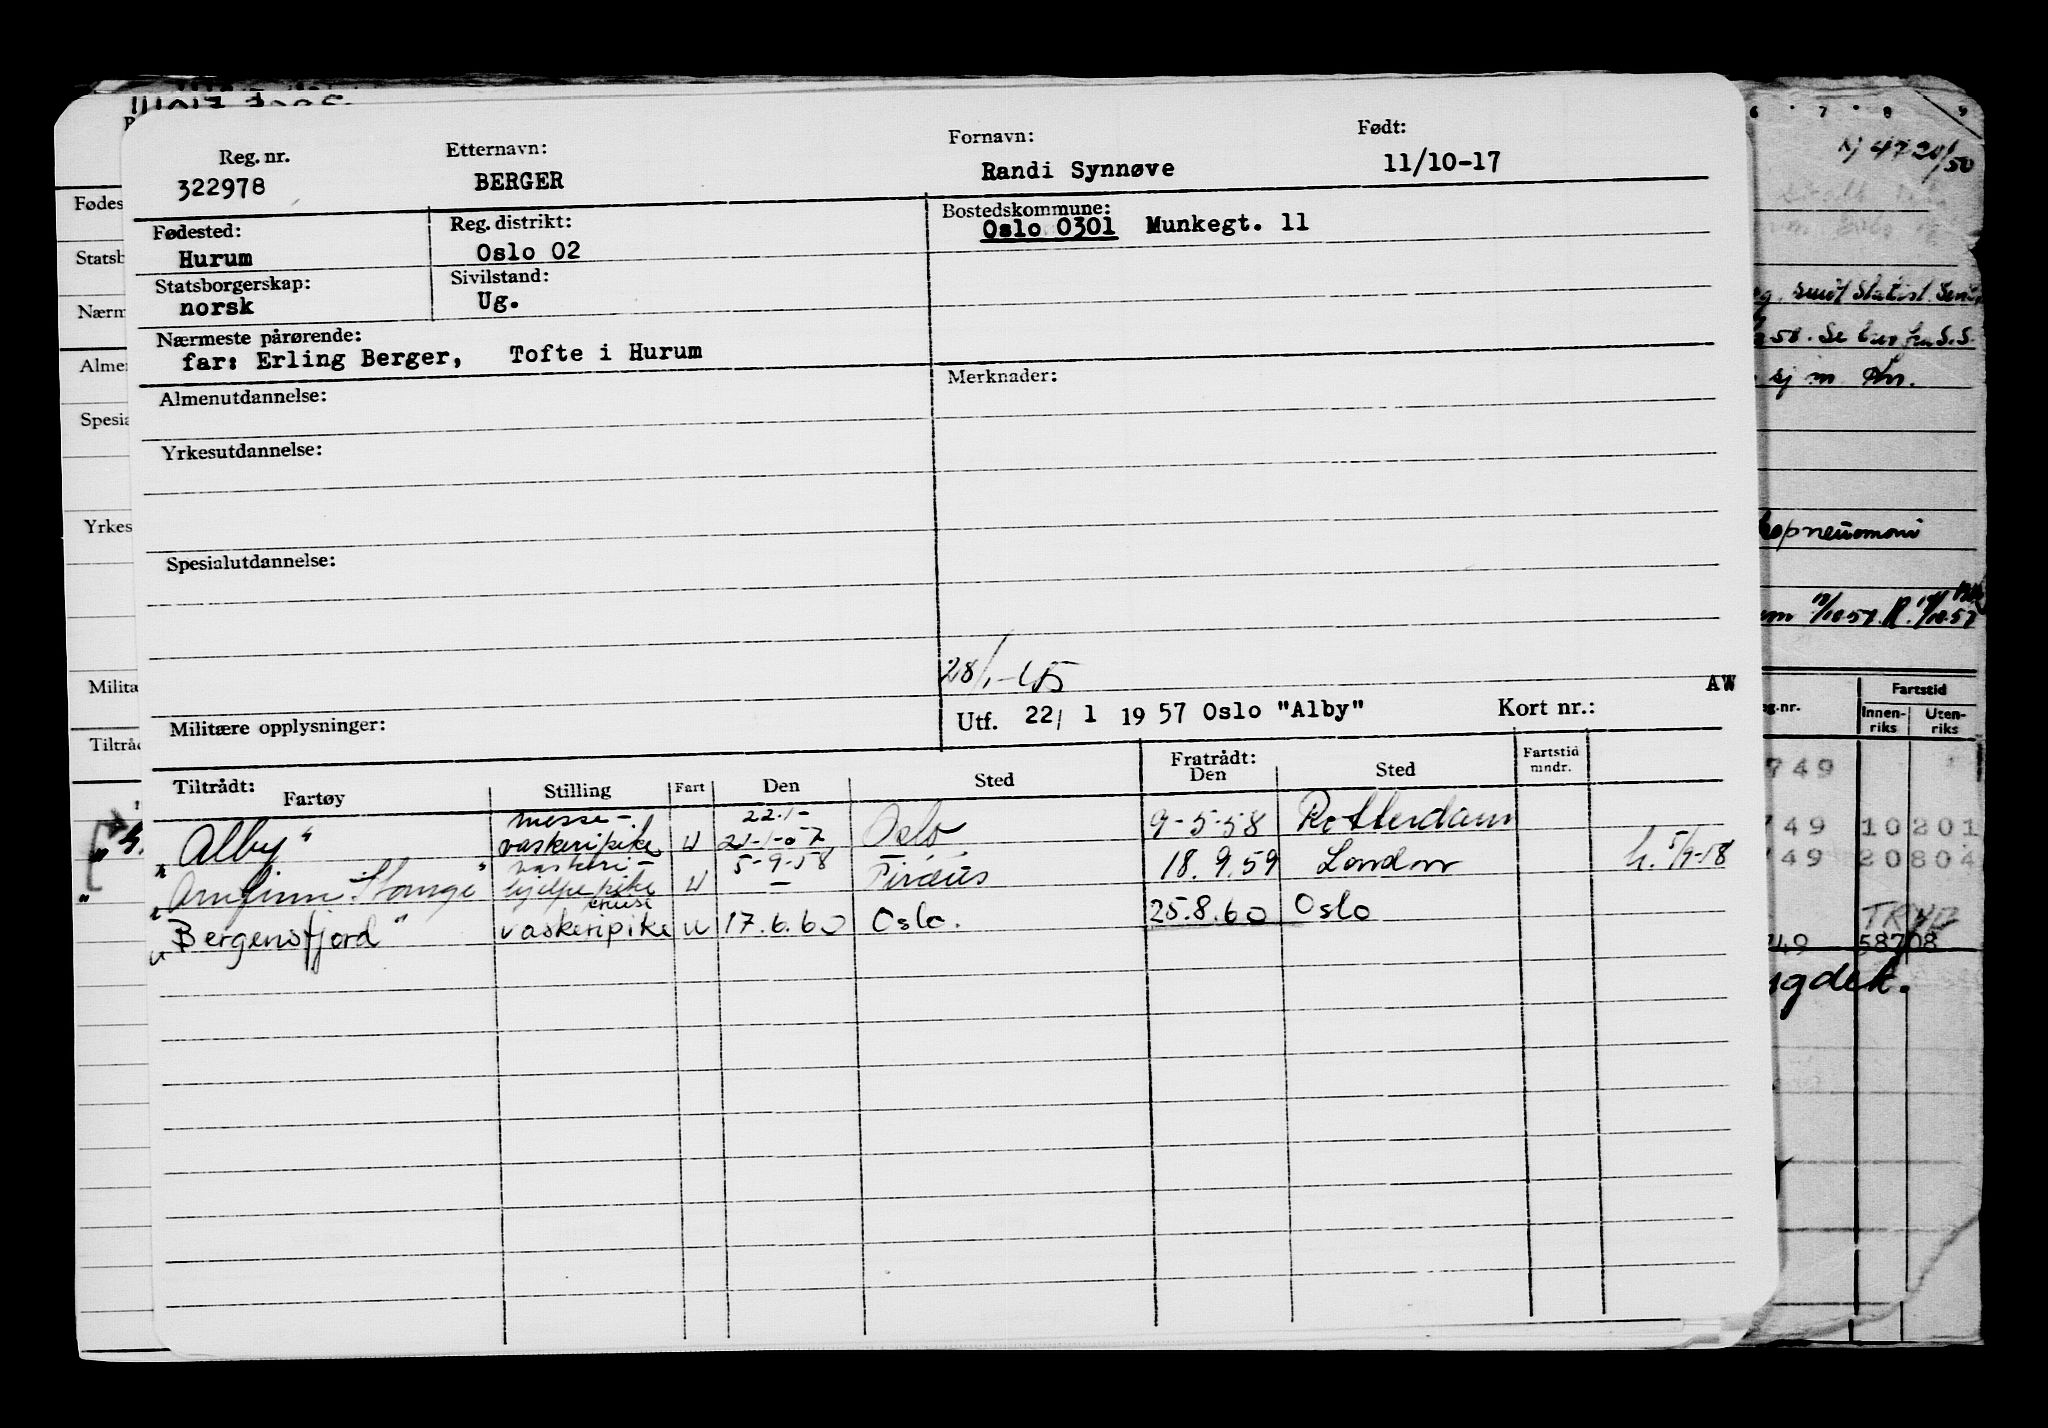 Reg. nr. Etternavn: Fornavn: Født:
322978 BERGER Randi Synnøve 11/10-17
Fødested: Reg. distrikt: Bostedskommune:
Hurum Oslo 02 Oslo 0301 Munkegt. 11
Statsborgerskap: Sivilstand:
norsk Ug.
Nærmeste pårørende:
far: Erling Berger, Tofte i Hurum
Almenutdannelse: Merknader:
Yrkesutdannelse:
Spesialutdannelse:
28/1-
AW
Militære opplysninger: Utf. 22/ 1 19 57 Oslo "Alby" Kort nr.:
Tiltrådt: Fratrådt: Fartstid
Fartøy Stilling Fart Den Sted Den Sted mndr.
messe- 22.1-
"Alby" vaskeripike U Oslo 9-5-58 Rotterdam
vaskeri- 5-9-58
"Arnfinn Stange" hjelpepike U — Pireus 18.9.59 London h. 5/9-58
cruise
"Bergensfjord" vaskeripike U 17.6.60 Oslo. 25.8.60 Oslo
Fødes
Statsb
Nærm
Almen
Spesia
Yrkes
Militæ
Tiltråd
6 7 8 9
47 20/50
58. Se
sj m
opneumoni
10.57
Fartstid
g.nr. Innen- Uten-
riks riks
749
749 10201
749 20804
TRYD
749 58708
ngdek.